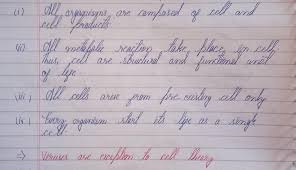 (i) All organisms are composed of cell and
cell products.
(ii) All metabolic reaction take place in cell,
thus, cell are structural and functional unit
of life.
(iii) All cells arise from pre existing cell only
(iv) Every organism start its life as a single
cell.
⇒ Viruses are exception to cell theory